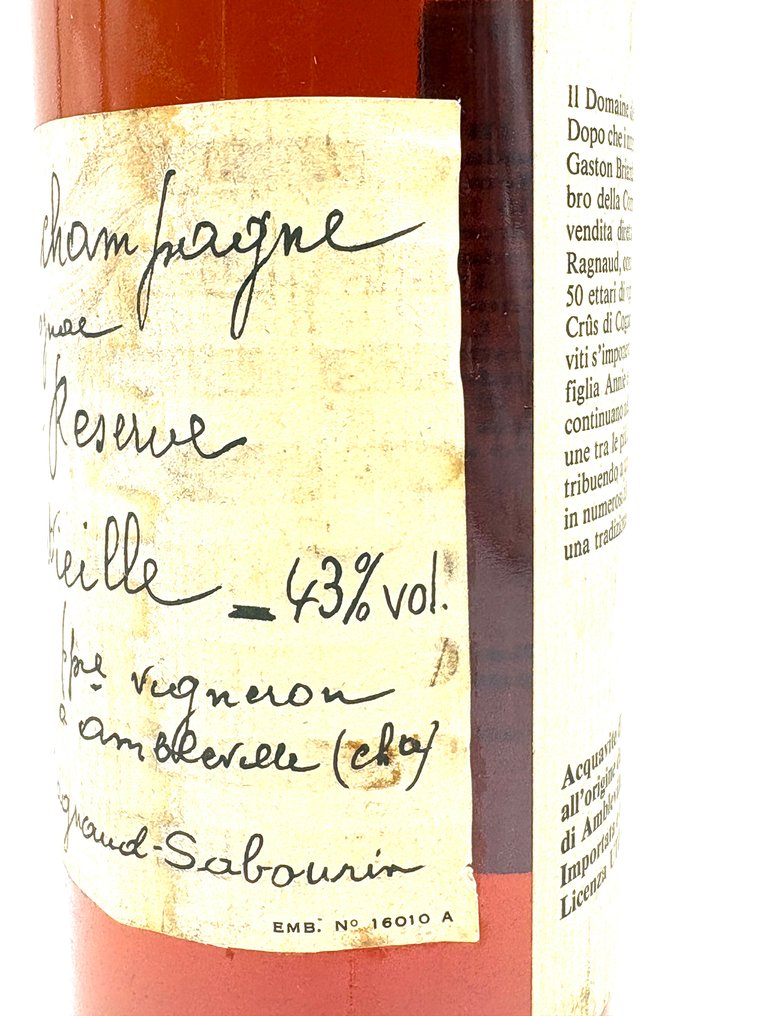 champagne
Reserve
Vieille - 43% vol.
ppre vigneron
à Ambleville (chte)
Ragnaud-Sabourin
EMB. No 16010 A
Il Domaine
Dopo che i
Gaston
bro della
vendita
Ragnaud,
50 ettari di
Crûs di
viti
figlia Annie
continuano
une tra le
tribuendo a
in numerosi
una
Acquavite
all'origine
di
Importata
Licenza